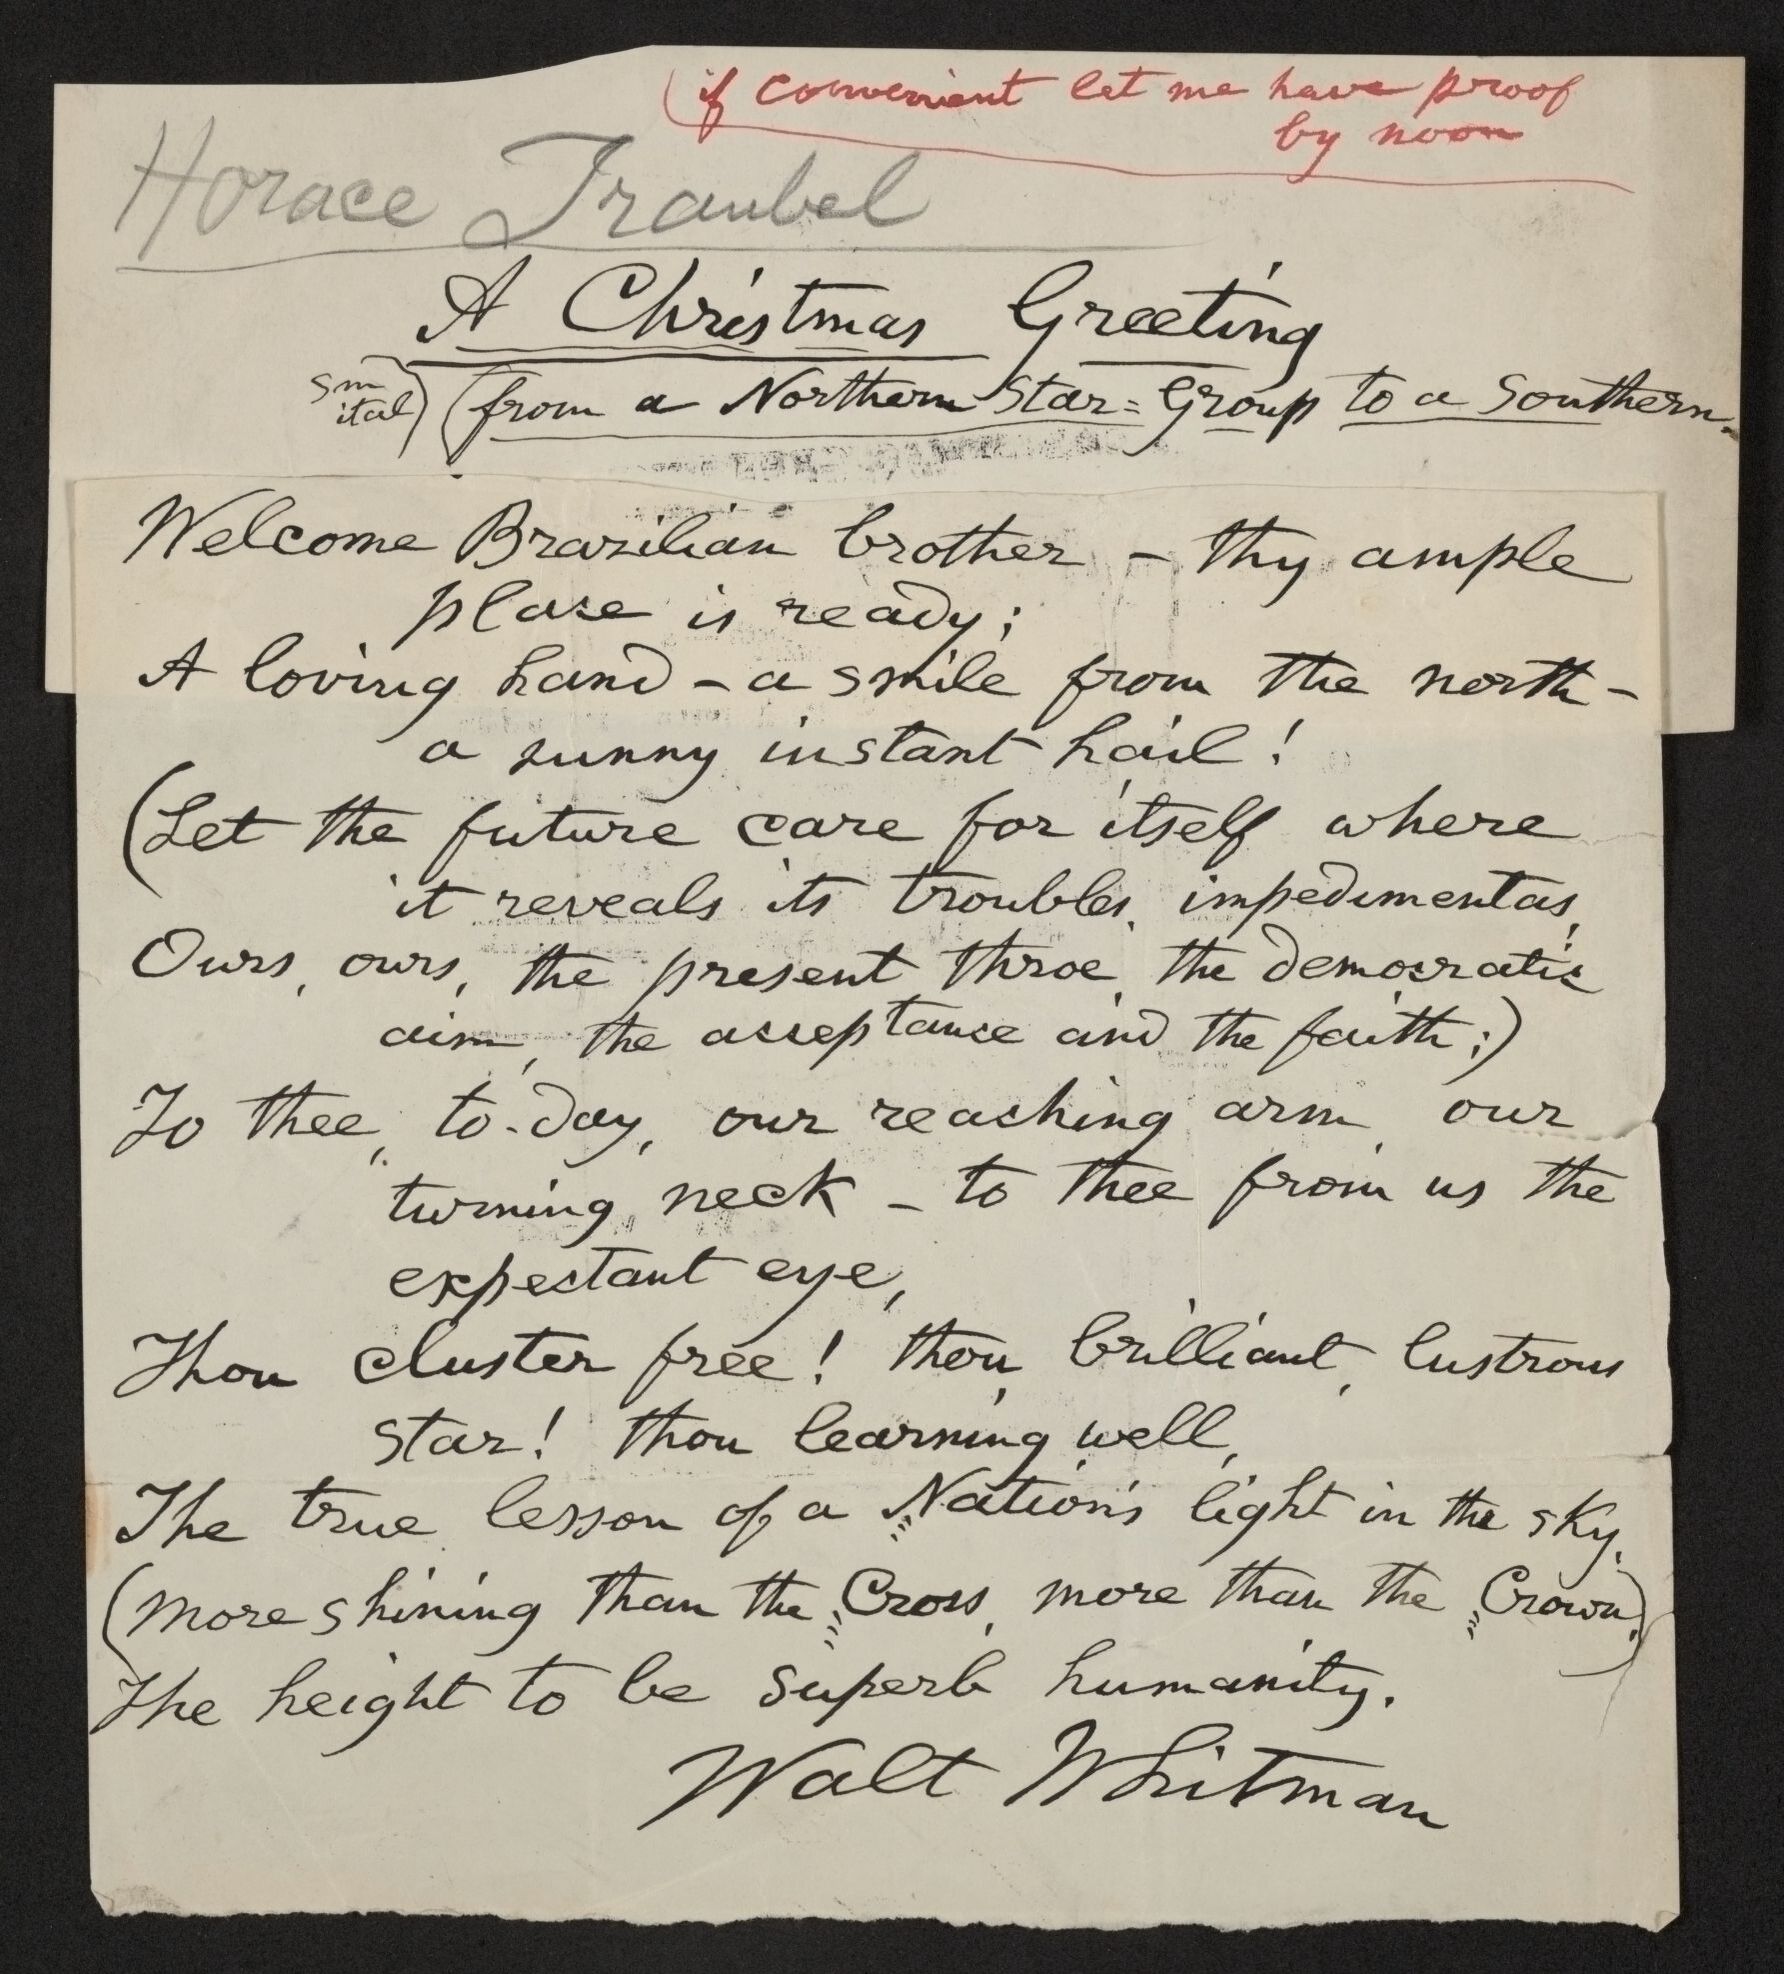 (if convenient let me have proof
by noon
Horace Traubel
A Christmas Greeting
sm
ital) (from a Northern Star-Group to a Southern.
Welcome Brazilian brother – thy ample
place is ready;
A loving hand – a smile from the north –
a sunny instant hail!
(Let the future care for itself where
it reveals its troubles, impedimentas,
Ours, ours, the present throe, the democratic
aim, the acceptance and the faith;)
To thee, to-day, our reaching arm, our
turning neck – to thee from us the
expectant eye,
Thou cluster free! thou, brilliant, lustrous
star! thou learning well,
The true lesson of a Nation's light in the sky,
(More shining than the Cross, more than the Crown,)
The height to be superb humanity.
Walt Whitman